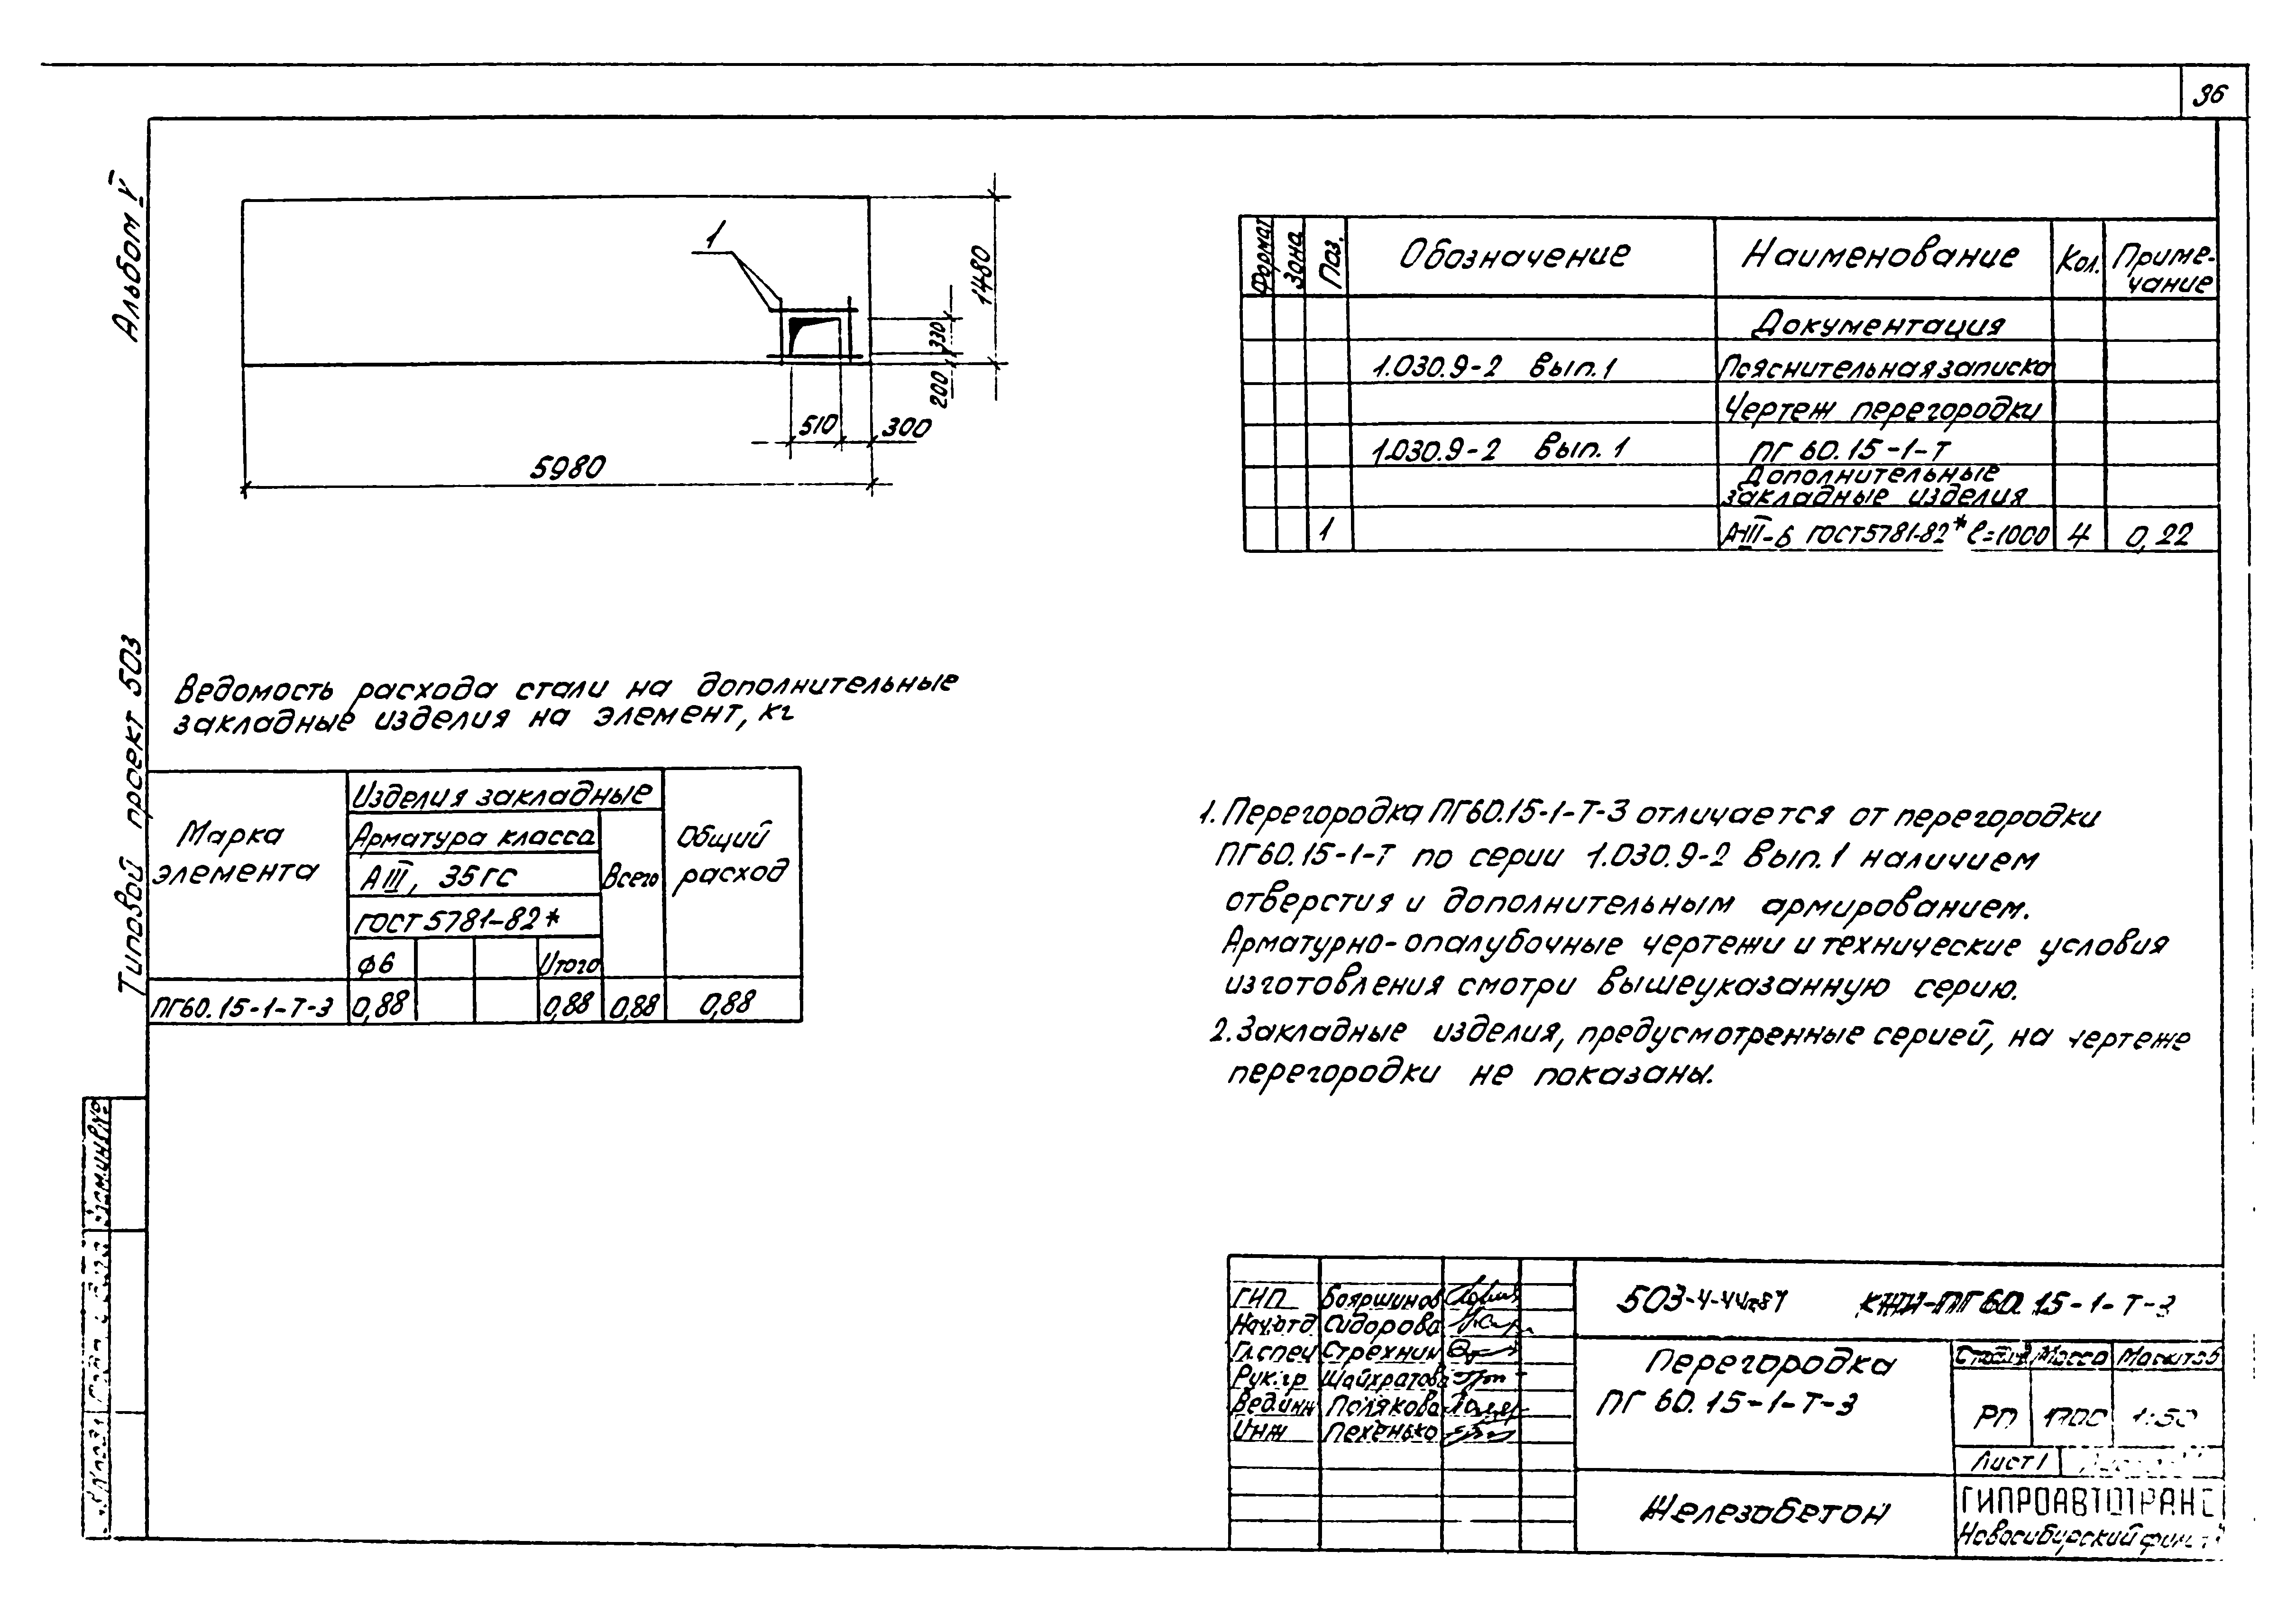 36
Альбом V
Типовой проект 503
1
1480
330
200
510
300
5980
Формат Зона Поз. Обозначение Наименование Кол. Приме-
чание
Документация
1.030.9-2 Вып.1 Пояснительная записка
Чертеж перегородки
1.030.9-2 Вып.1 ПГ 60.15-1-Т
Дополнительные
закладные изделия
1 АIII-6 ГОСТ5781-82* ℓ=1000 4 0,22
Ведомость расхода стали на дополнительные
закладные изделия на элемент, кг
Марка
элемента
Изделия закладные
Арматура класса
АIII, 35ГС
ГОСТ 5781-82*
Ф6 Итого
Всего
Общий
расход
ПГ60.15-1-Т-3 0,88 0,88 0,88 0,88
1. Перегородка ПГ60.15-1-Т-3 отличается от перегородки
ПГ60.15-1-Т по серии 1.030.9-2 Вып.1 наличием
отверстия и дополнительным армированием.
Арматурно-опалубочные чертежи и технические условия
изготовления смотри вышеуказанную серию.
2. Закладные изделия, предусмотренные серией, на чертеже
перегородки не показаны.
ГИП Бояршинов
Нач.отд Сидорова
Гл.спец Стрехнин
Рук.гр Шайхратова
Вед.инж Полякова
Инж Пехенько
503-4-44.87 КЖИ-ПГ60.15-1-Т-3
Перегородка
ПГ 60.15-1-Т-3
Стадия Масса Масштаб
РП 1700 1:50
Лист 1
Железобетон
ГИПРОАВТОТРАНС
Новосибирский